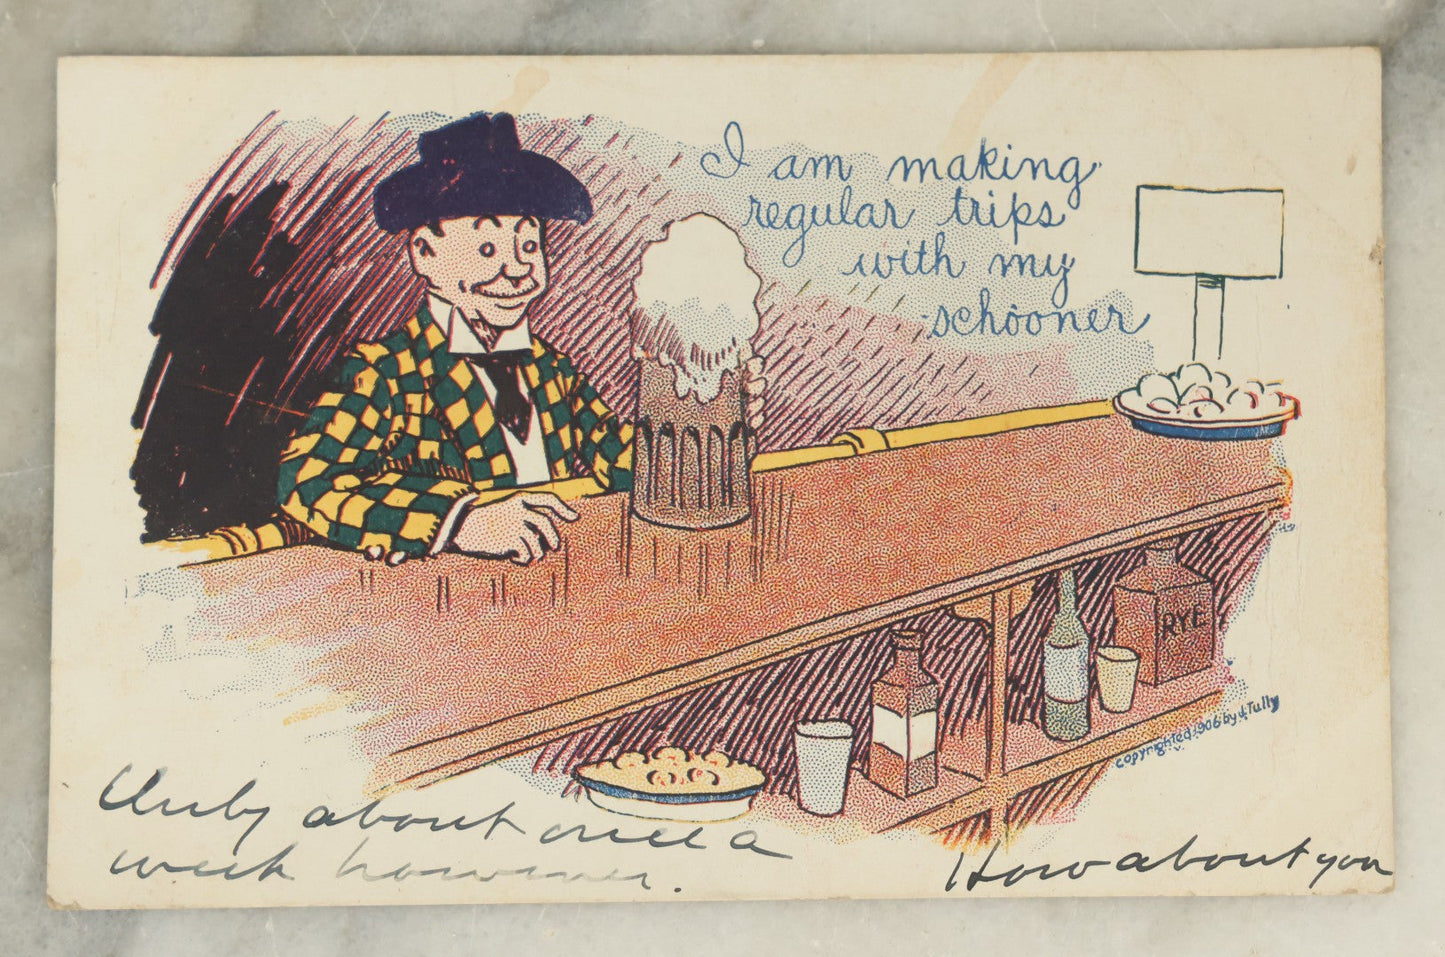 I am making
regular trips
with my
schooner
RYE
copyrighted 1906 by J. Tully
Only about once a
week however.
How about you